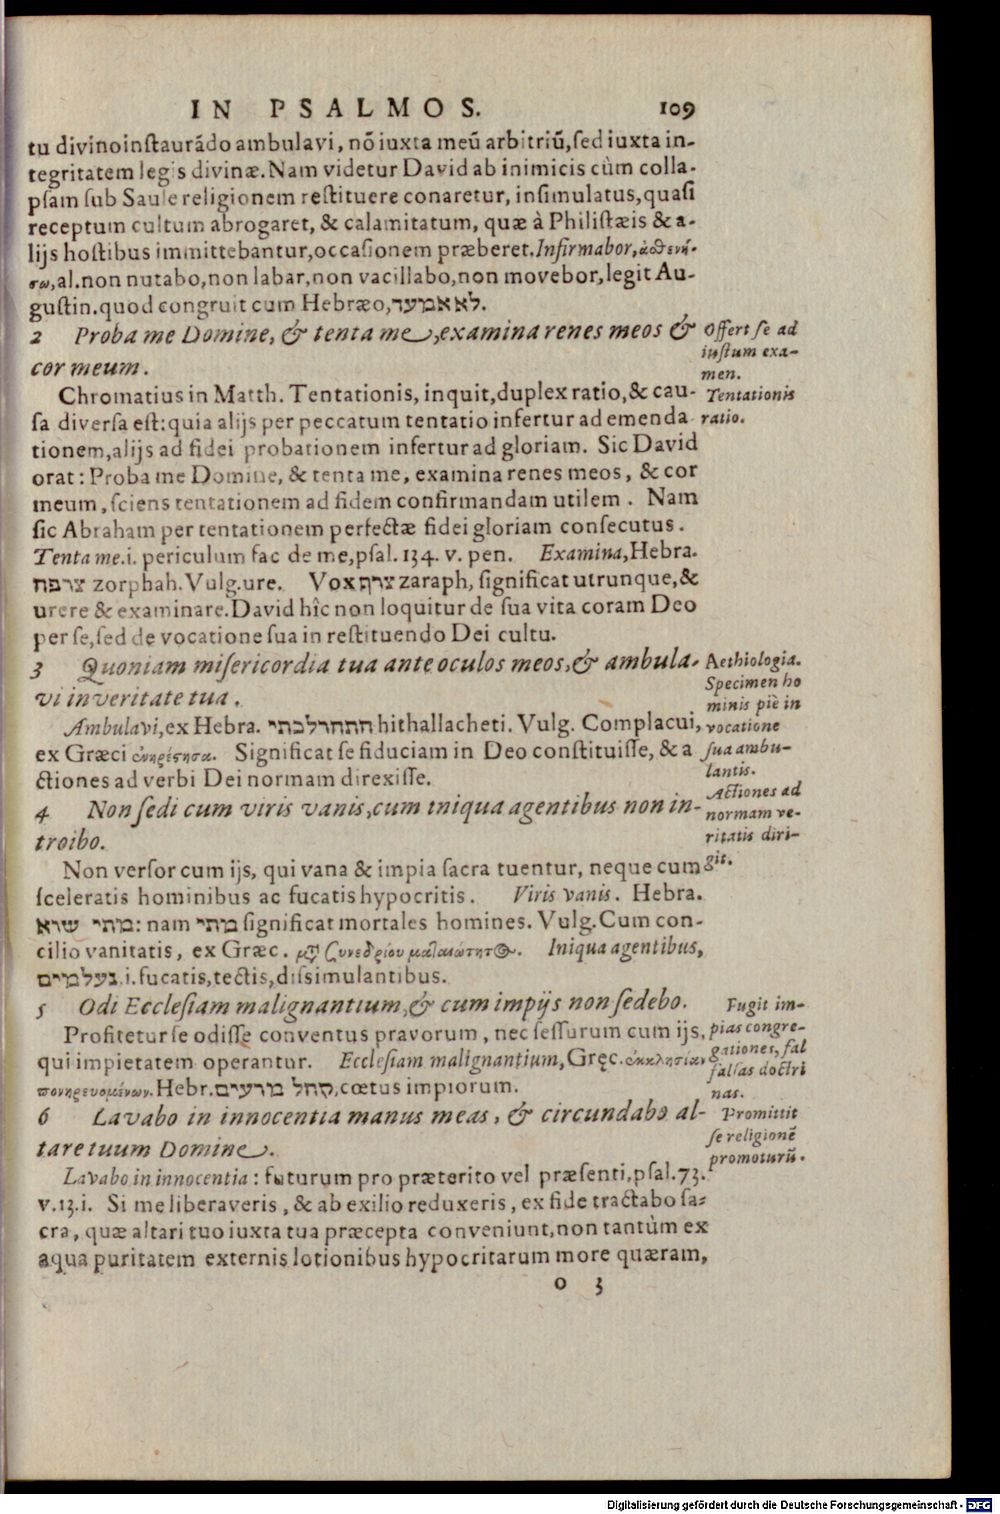 IN PSALMOS. 109
tu divino inſtaurādo ambulavi, nō iuxta meū arbitriū, ſed iuxta in-
tegritatem legis divinæ. Nam videtur David ab inimicis cùm colla-
pſam ſub Saule religionem reſtituere conaretur, inſimulatus, quaſi
receptum cultum abrogaret, & calamitatum, quæ à Philiſtæis & a-
lijs hoſtibus immittebantur, occaſionem præberet. Infirmabor, ἀσθενή-
σω, al. non nutabo, non labar, non vacillabo, non movebor, legit Au-
guſtin. quod congruit cum Hebræo, לא אמער.
2 Proba me Domine, & tenta me, examina renes meos &
cor meum.
Offert ſe ad
iuſtum exa-
men.
Chromatius in Matth. Tentationis, inquit, duplex ratio, & cau-
ſa diverſa eſt: quia alijs per peccatum tentatio infertur ad emenda
tionem, alijs ad fidei probationem infertur ad gloriam. Sic David
orat: Proba me Domine, & tenta me, examina renes meos, & cor
meum, ſciens tentationem ad fidem confirmandam utilem. Nam
ſic Abraham per tentationem perfectæ fidei gloriam conſecutus.
Tentationis
ratio.
Tenta me. i. periculum fac de me, pſal. 134. v. pen. Examina, Hebra.
צרפה zorphah. Vulg. ure. Vox צרף zaraph, ſignificat utrunque, &
urere & examinare. David hîc non loquitur de ſua vita coram Deo
per ſe, ſed de vocatione ſua in reſtituendo Dei cultu.
3 Quoniam miſericordia tua ante oculos meos, & ambula-
vi in veritate tua.
Aethiologia.
Specimen ho
minis piè in
vocatione
ſua ambu-
lantis.
Ambulavi, ex Hebra. התהרלכתי hithallacheti. Vulg. Complacui,
ex Græci Significat ſe fiduciam in Deo conſtituiſſe, & a
ctiones ad verbi Dei normam direxiſſe.
4 Non ſedi cum viris vanis, cum iniqua agentibus non in-
troibo.
Actiones ad
normam ve-
ritatis diri-
git.
Non verſor cum ijs, qui vana & impia ſacra tuentur, neque cum
ſceleratis hominibus ac fucatis hypocritis. Viris vanis. Hebra.
מתי שוא: nam מתי ſignificat mortales homines. Vulg. Cum con-
cilio vanitatis, ex Græc. Iniqua agentibus,
נעלמים. i. fucatis, tectis, diſſimulantibus.
5 Odi Eccleſiam malignantium, & cum impijs non ſedebo.
Fugit im-
pias congre-
gationes, fal
falſas doctri
nas.
Profitetur ſe odiſſe conventus pravorum, nec ſeſſurum cum ijs,
qui impietatem operantur. Eccleſiam malignantium, Gręc. ἐκκλησίαν
πονηρευομένων. Hebr. קהל מרעים, cœtus impiorum.
6 Lavabo in innocentia manus meas, & circundabo al-
tare tuum Domine.
Promittit
ſe religionē
promoturū.
Lavabo in innocentia: futurum pro præterito vel præſenti, pſal. 73.
v. 13. i. Si me liberaveris, & ab exilio reduxeris, ex fide tractabo ſa-
cra, quæ altari tuo iuxta tua præcepta conveniunt, non tantùm ex
aqua puritatem externis lotionibus hypocritarum more quæram,
o 3
Digitalisierung gefördert durch die Deutsche Forschungsgemeinschaft - DFG